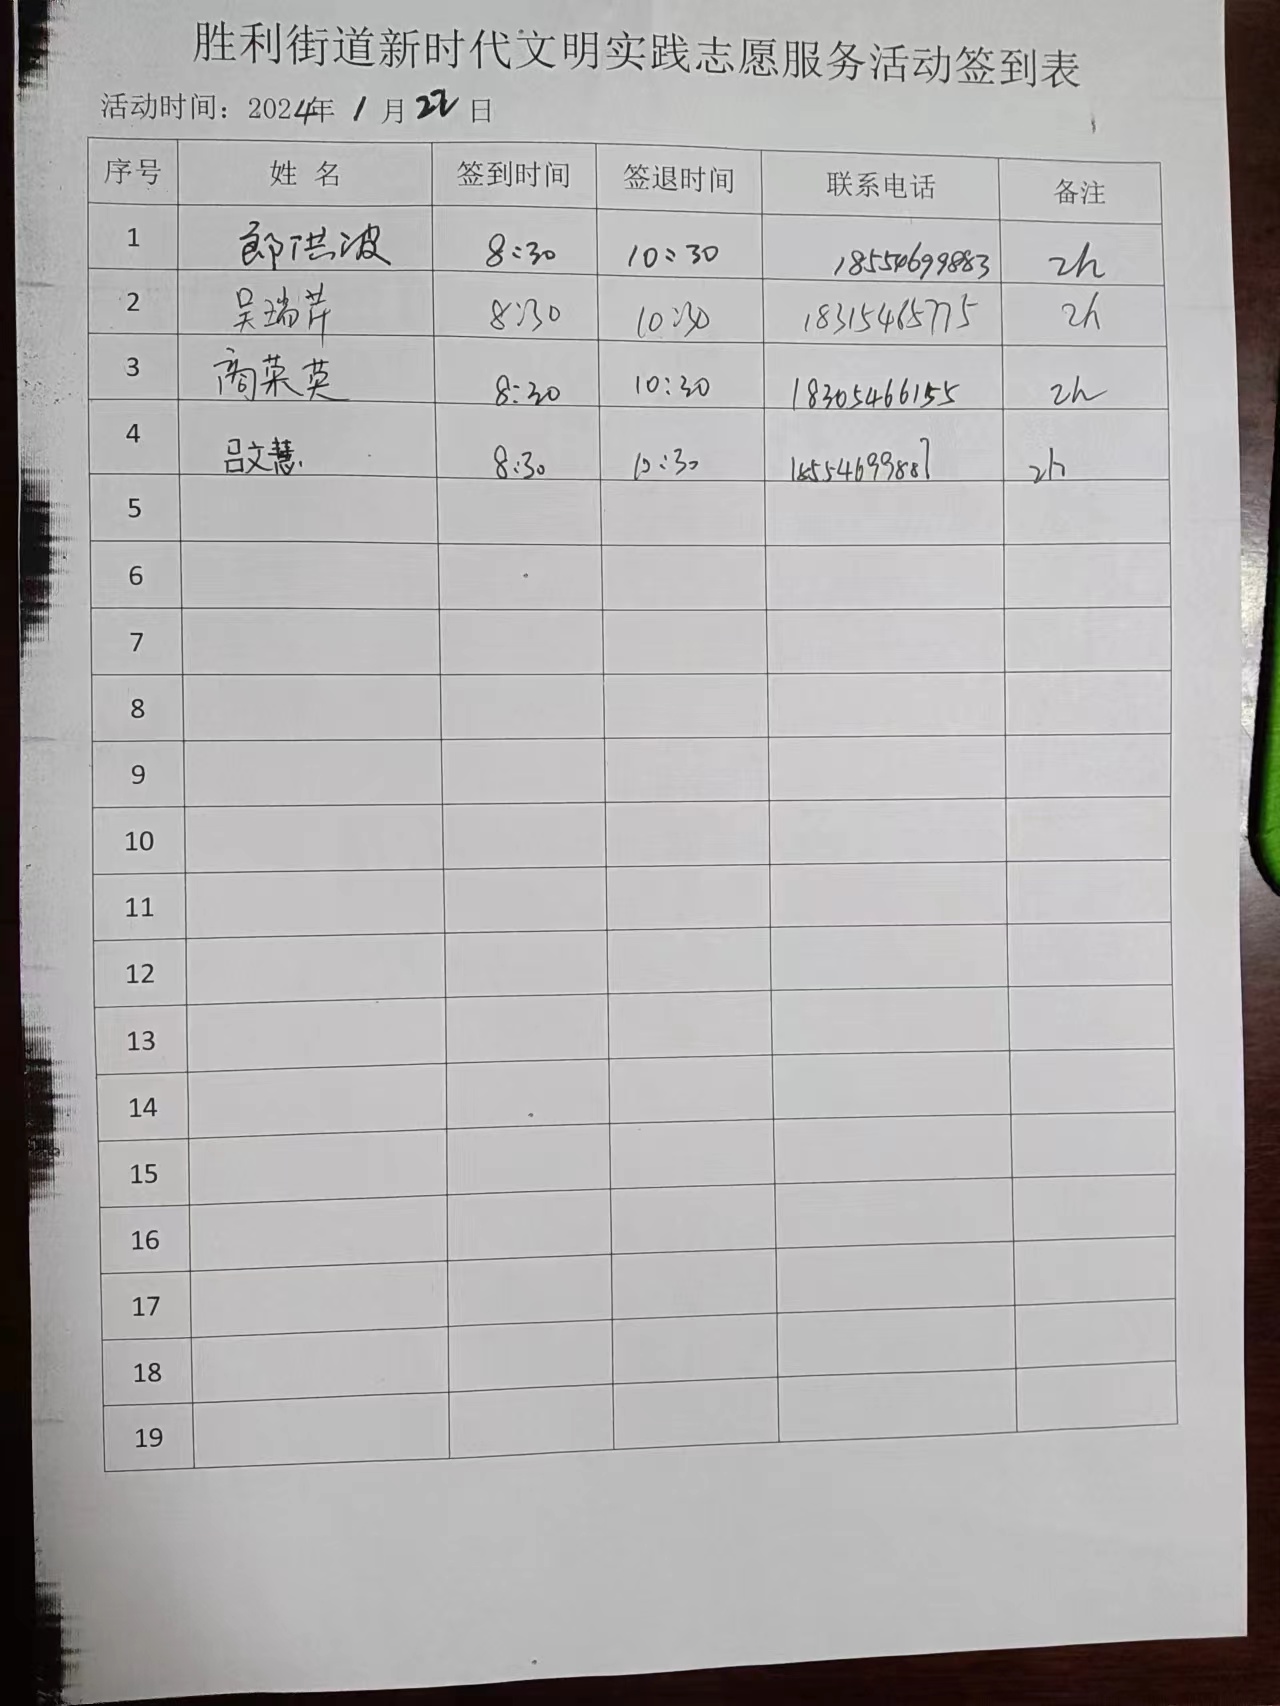 胜利街道新时代文明实践志愿服务活动签到表
活动时间：2024年 1 月 22 日
序号 姓 名 签到时间 签退时间 联系电话 备注
1 郎洪波 8:30 10:30 18554699883 2h
2 吴瑞芹 8:30 10:30 18315465775 2h
3 商荣英 8:30 10:30 18305466155 2h
4 吕文慧 8:30 10:30 18554699887 2h
5
6
7
8
9
10
11
12
13
14
15
16
17
18
19